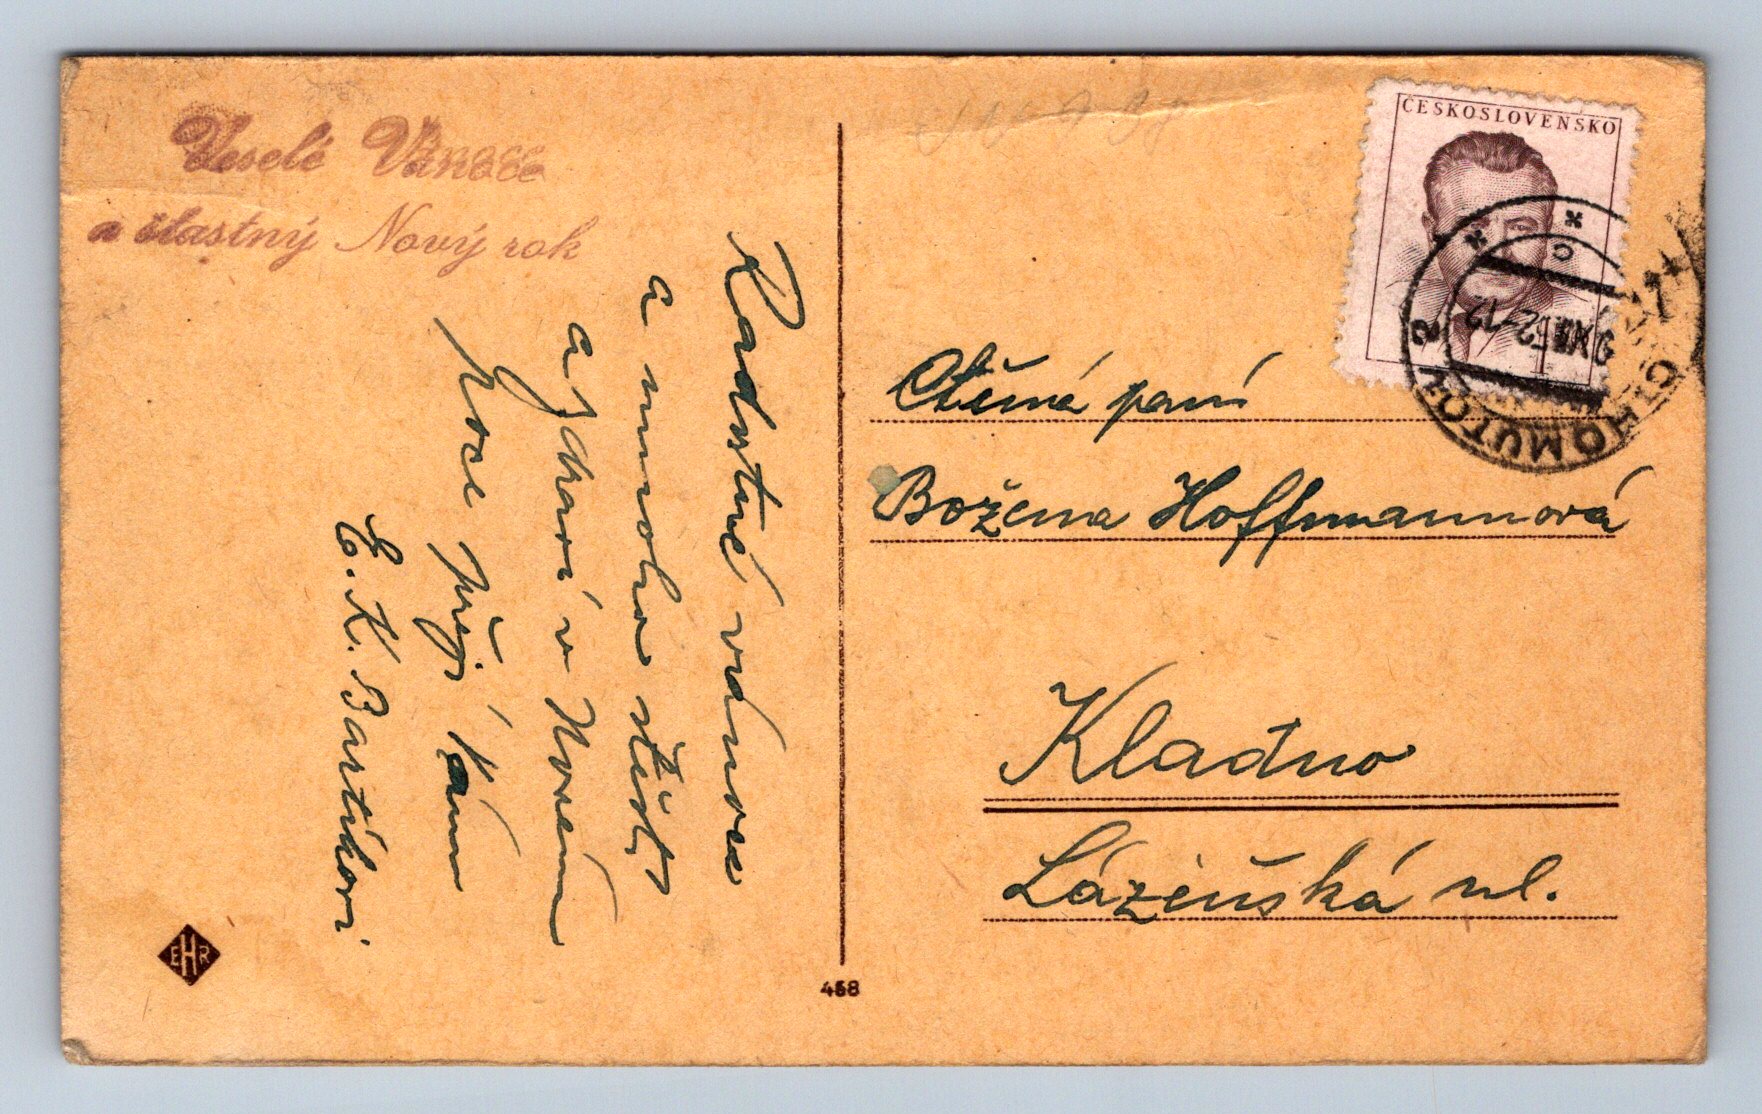 Veselé Vánoce
a šťastný Nový rok
Radostné vánoce
a mnoho štěstí
a zdraví v Novém
Roce přejí Vám
E. K. Bartákovi
EHR
468
ČESKOSLOVENSKO
CHOMUTOV 2
9.XII.52-12
1
Ctěná paní
Božena Hoffmannová
Kladno
Lázeňská ul.